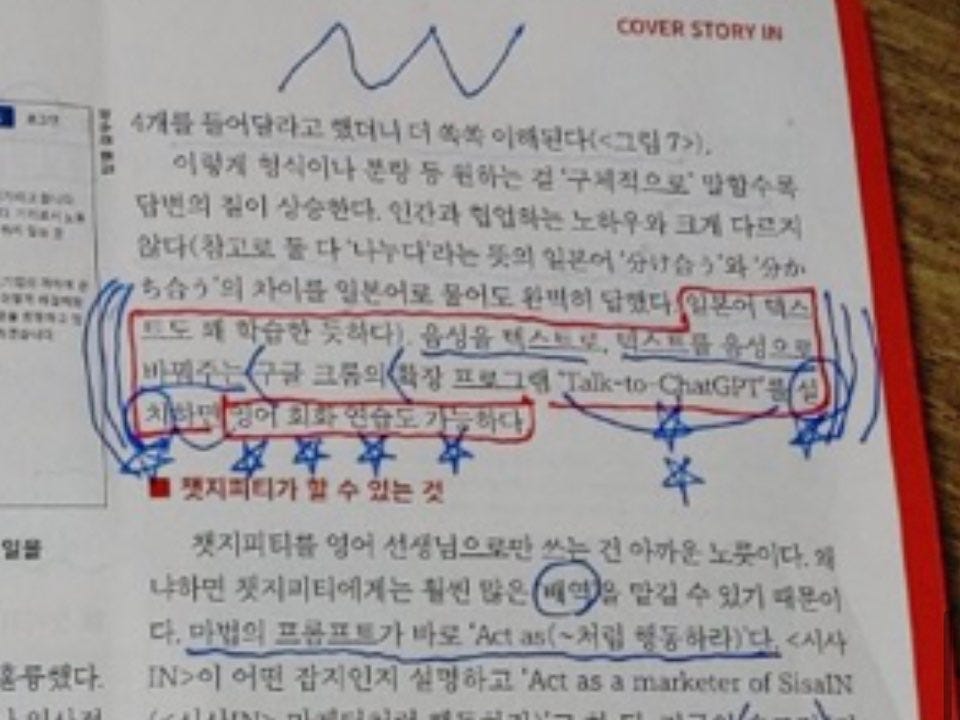 COVER STORY IN
4개를 들어달라고 했더니 더 쏙쏙 이해된다(<그림 7>).
이렇게 형식이나 분량 등 원하는 걸 '구체적으로' 말할수록
답변의 질이 상승한다. 인간과 협업하는 노하우와 크게 다르지
않다(참고로 둘 다 '나누다'라는 뜻의 일본어 '分け合う'와 '分か
ち合う'의 차이를 일본어로 물어도 완벽히 답했다. 일본어 텍스
트도 꽤 학습한 듯하다). 음성을 텍스트로, 텍스트를 음성으로
바꿔주는 구글 크롬의 확장 프로그램 'Talk-to-ChatGPT'를 설
치하면 영어 회화 연습도 가능하다.
■ 챗지피티가 할 수 있는 것
챗지피티를 영어 선생님으로만 쓰는 건 아까운 노릇이다. 왜
냐하면 챗지피티에게는 훨씬 많은 '배역'을 맡길 수 있기 때문이
다. 마법의 프롬프트가 바로 'Act as(~처럼 행동하라)'다. <시사
IN>이 어떤 잡지인지 설명하고 'Act as a marketer of SisaIN
일몰
훌륭했다.